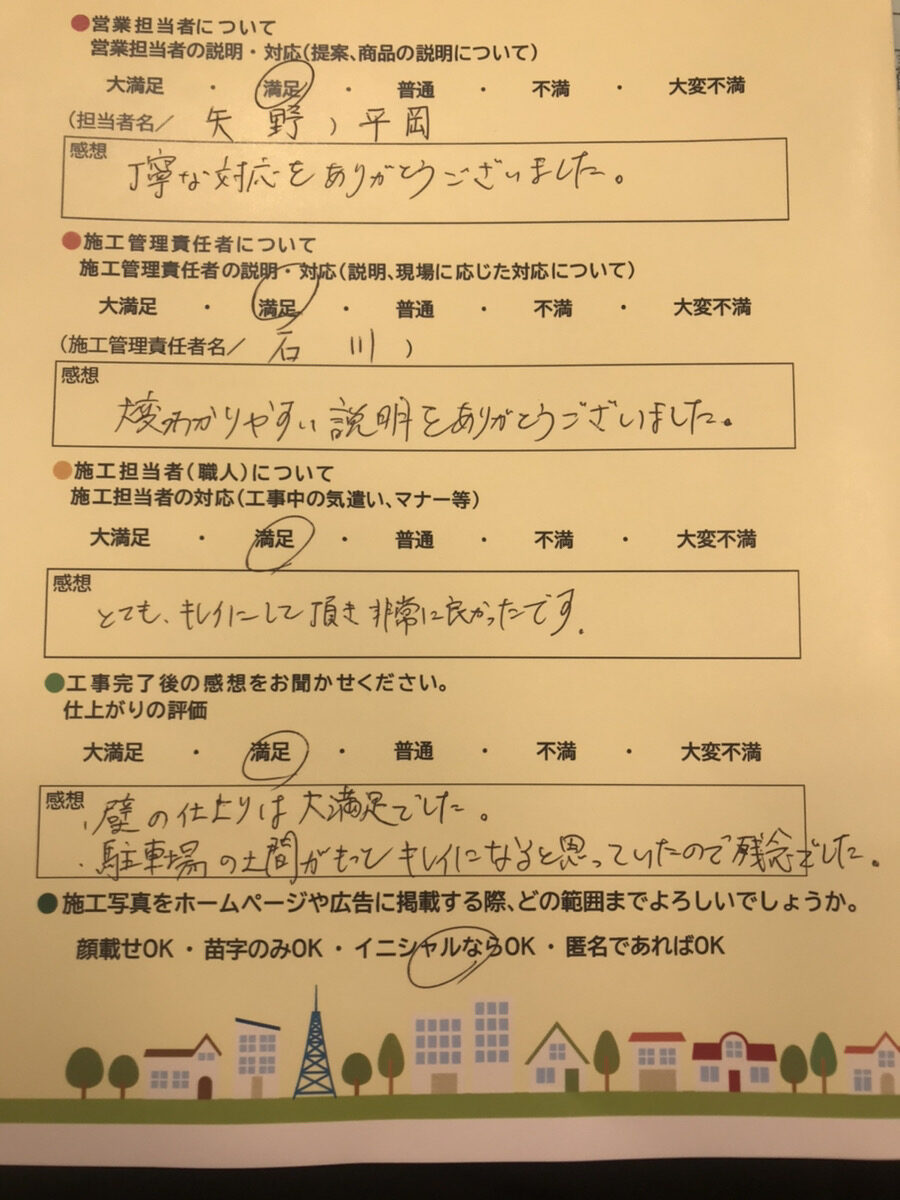 ●営業担当者について
営業担当者の説明・対応(提案、商品の説明について)
大満足 ・ 満足 ・ 普通 ・ 不満 ・ 大変不満
(担当者名/ 矢野 ) 平岡
感想
丁寧な対応をありがとうございました。
●施工管理責任者について
施工管理責任者の説明・対応(説明、現場に応じた対応について)
大満足 ・ 満足 ・ 普通 ・ 不満 ・ 大変不満
(施工管理責任者名/ 石川 )
感想
大変わかりやすい説明をありがとうございました。
●施工担当者(職人)について
施工担当者の対応(工事中の気遣い、マナー等)
大満足 ・ 満足 ・ 普通 ・ 不満 ・ 大変不満
感想
とても、キレイにして頂き非常に良かったです.
●工事完了後の感想をお聞かせください。
仕上がりの評価
大満足 ・ 満足 ・ 普通 ・ 不満 ・ 大変不満
感想
・壁の仕上りは大満足でした。
・駐車場の土間がもっとキレイになると思っていたので残念でした。
●施工写真をホームページや広告に掲載する際、どの範囲までよろしいでしょうか。
顔載せOK・苗字のみOK・イニシャルならOK・匿名であればOK